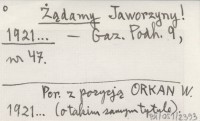 Żądamy Jaworzyny!
1921... — Gaz. Podh. 9,
nr 47.
Por. z pozycją ORKAN W.
1921... (o takim samym tytule).